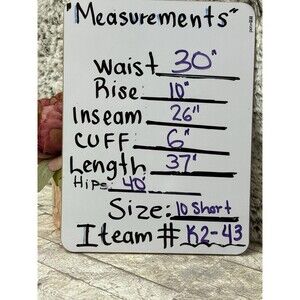 "Measurements"
Waist 30"
Rise: 10"
Inseam: 26"
CUFF: 6"
Length 37"
Hips 40"
Size: 10 Short
Iteam # K2-43